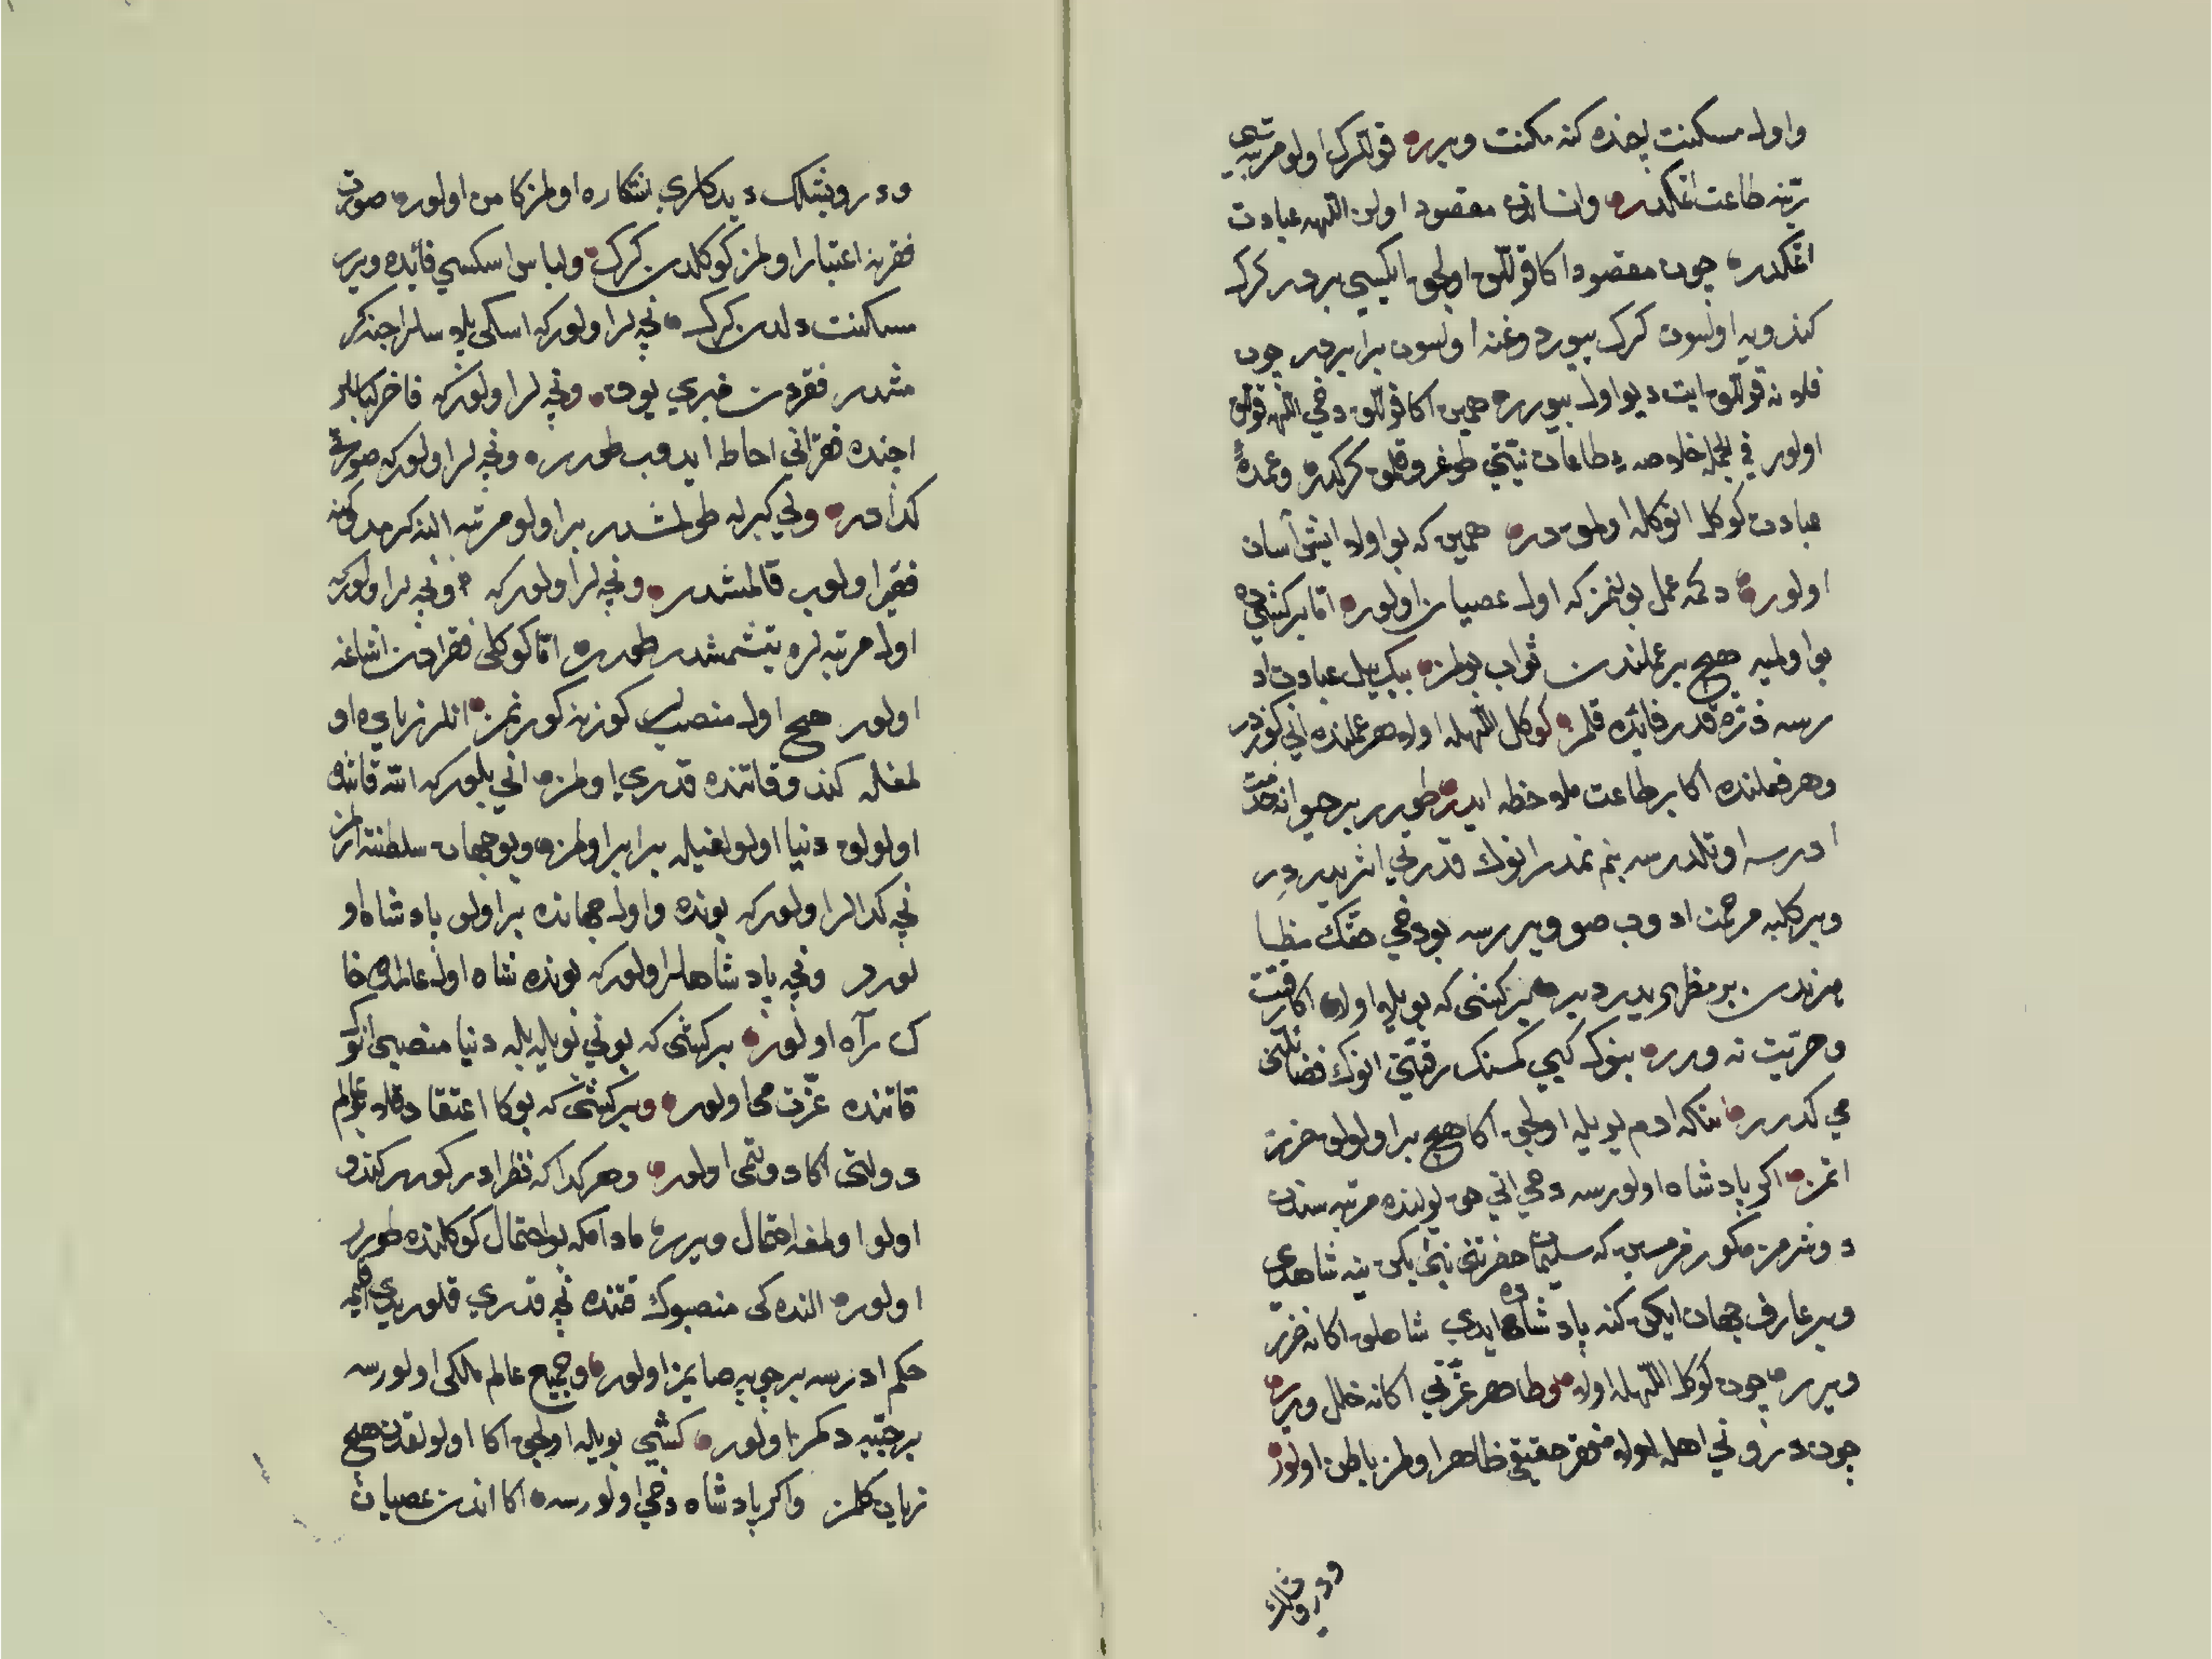 واول مسكنت ايچنده كنه مكنت ويرر قوللرك اولو مرتبه سى
ترينه طاعت اتمكدر وانساندن مقصود اولن اللهه عبادت
اتمكدر چون مقصود اكا قوللق اولجق ايكيسي بردر كرك
كندويه اولسون كرك بيوردوغنه اولسون برابردر چون
فلانه قوللق ايت ديو اول بيورر همين اكا قوللق دخي اللهه قوللق
اولور في الجمله خلاصه ء طاعات نيتي طوغرو قلمق كركدر وعمدهٔ
عبادت كوكل انوكله اولمق در همين كه بو اولا ايش آسان
اولور دكمه عمل بولنمز كه اول عصيان اولور اما بر كشيده
بو اولميه هيچ بر عملندن ثواب بولمز بيك ييل عبادت اد
رسه ذره قدر فايده قلمز كوكل اللهله اولا هر عملنده اني كوزدر
وهر فعلنده اكا بر طاعت ملاحظه ايدر طورر بر حيوانه خدمت
ادرسه اوتلدرسه بنم نمدر انوك قدرتي اثريدر در
وبر كلبه مرحمت ادوب صو ويررسه بو دخي حقك مظا
هرندن بر مظهريدر دير بر كشى كه بويله اولا اكا رقيت
وحريت نه ورر بنوك كبي كمسنك رقيتي انوك فضايلنى
مي كدرر شكا ادم بويله اولجق اكا هيچ بر اولولق ضرر
اتمز اكر پادشاه اولورسه دخي اني حق يولنده مرتبه سندن
دوشرمز مكورمزمسين كه سليمان حضرتنى نبى يكن ينه شاهدى
وبر عارف جهان ايكن كنه پادشاه ايدي شاهلق اكا نه ضرر
ويرر چون كوكل اللهله اولا وظاهر عزتي اكا نه خلل ويرر
چون درونى اهل اولا فقر حقيقي ظاهر اولمز باطن اولور
ودرويشلك
ودرويشلك ديدكلري اشكاره اولمز كامن اولور صورت
فقرنه اعتبار اولمز كوكلدن كرك ولباس اسكسي فائده ويرمز
مسكنت دلدن كرك نچه لر اولور كه اسكى پلاسلر اچنده كر
مشدر فقردن خبري يوق ونچه لر اولور كه فاخر لباسلر
اچنده فقر اني احاطه ايدوب طورر ونچه لر اولور كه صورتى
كدادر ولي كبرله طولمشدر بر اولو مرتبه النه كرمدوكنه
فقير اولوب قالمشدر ونچه لر اولور كه ونچه لر اولور كه
اول مرتبه لره يتشمشدر طورر اما كوكلى فقرادن اشاغه
اولور هيچ اول منصب كوزينه كورنمز انلر زياده او
لمغله كندو قاتنده قدري اولمز اني بلور كه الله قاتنده
اولولق دنيا اولولغيله برابر اولمز وبو جهان سلطنته ارلمز
نچه كدالر اولور كه بونده واول جهانده بر اولو پادشاه او
لورلر ونچه پادشاهلر اولور كه بونده شاه اول عالمده خا
ك راه اولور بر كشى كه بوني بويله بله دنيا منصبى انوك
قاتنده عزت مى اولور وبر كشى كه بوكا اعتقاد قلا بو عالم
دولتى اكا دولتمى اولور وهر كدا كه نظر ادر كورر كندو
اولو اولمغه احتمال ويرر مادامكه بو احتمال كوكلنده طورر
اولور النده كى منصبوك قتنده نچه قدري قلور يدي اقليمه
حكم ادرسه بر چوپه صايمز اولور وجميع عالم ملكى اولورسه
بر حبه يه دكمز اولور كشي بويله اولجق اكا اولولقدن هيچ
زيان كلمز واكر پادشاه دخي اولورسه اكا اندن عصيان